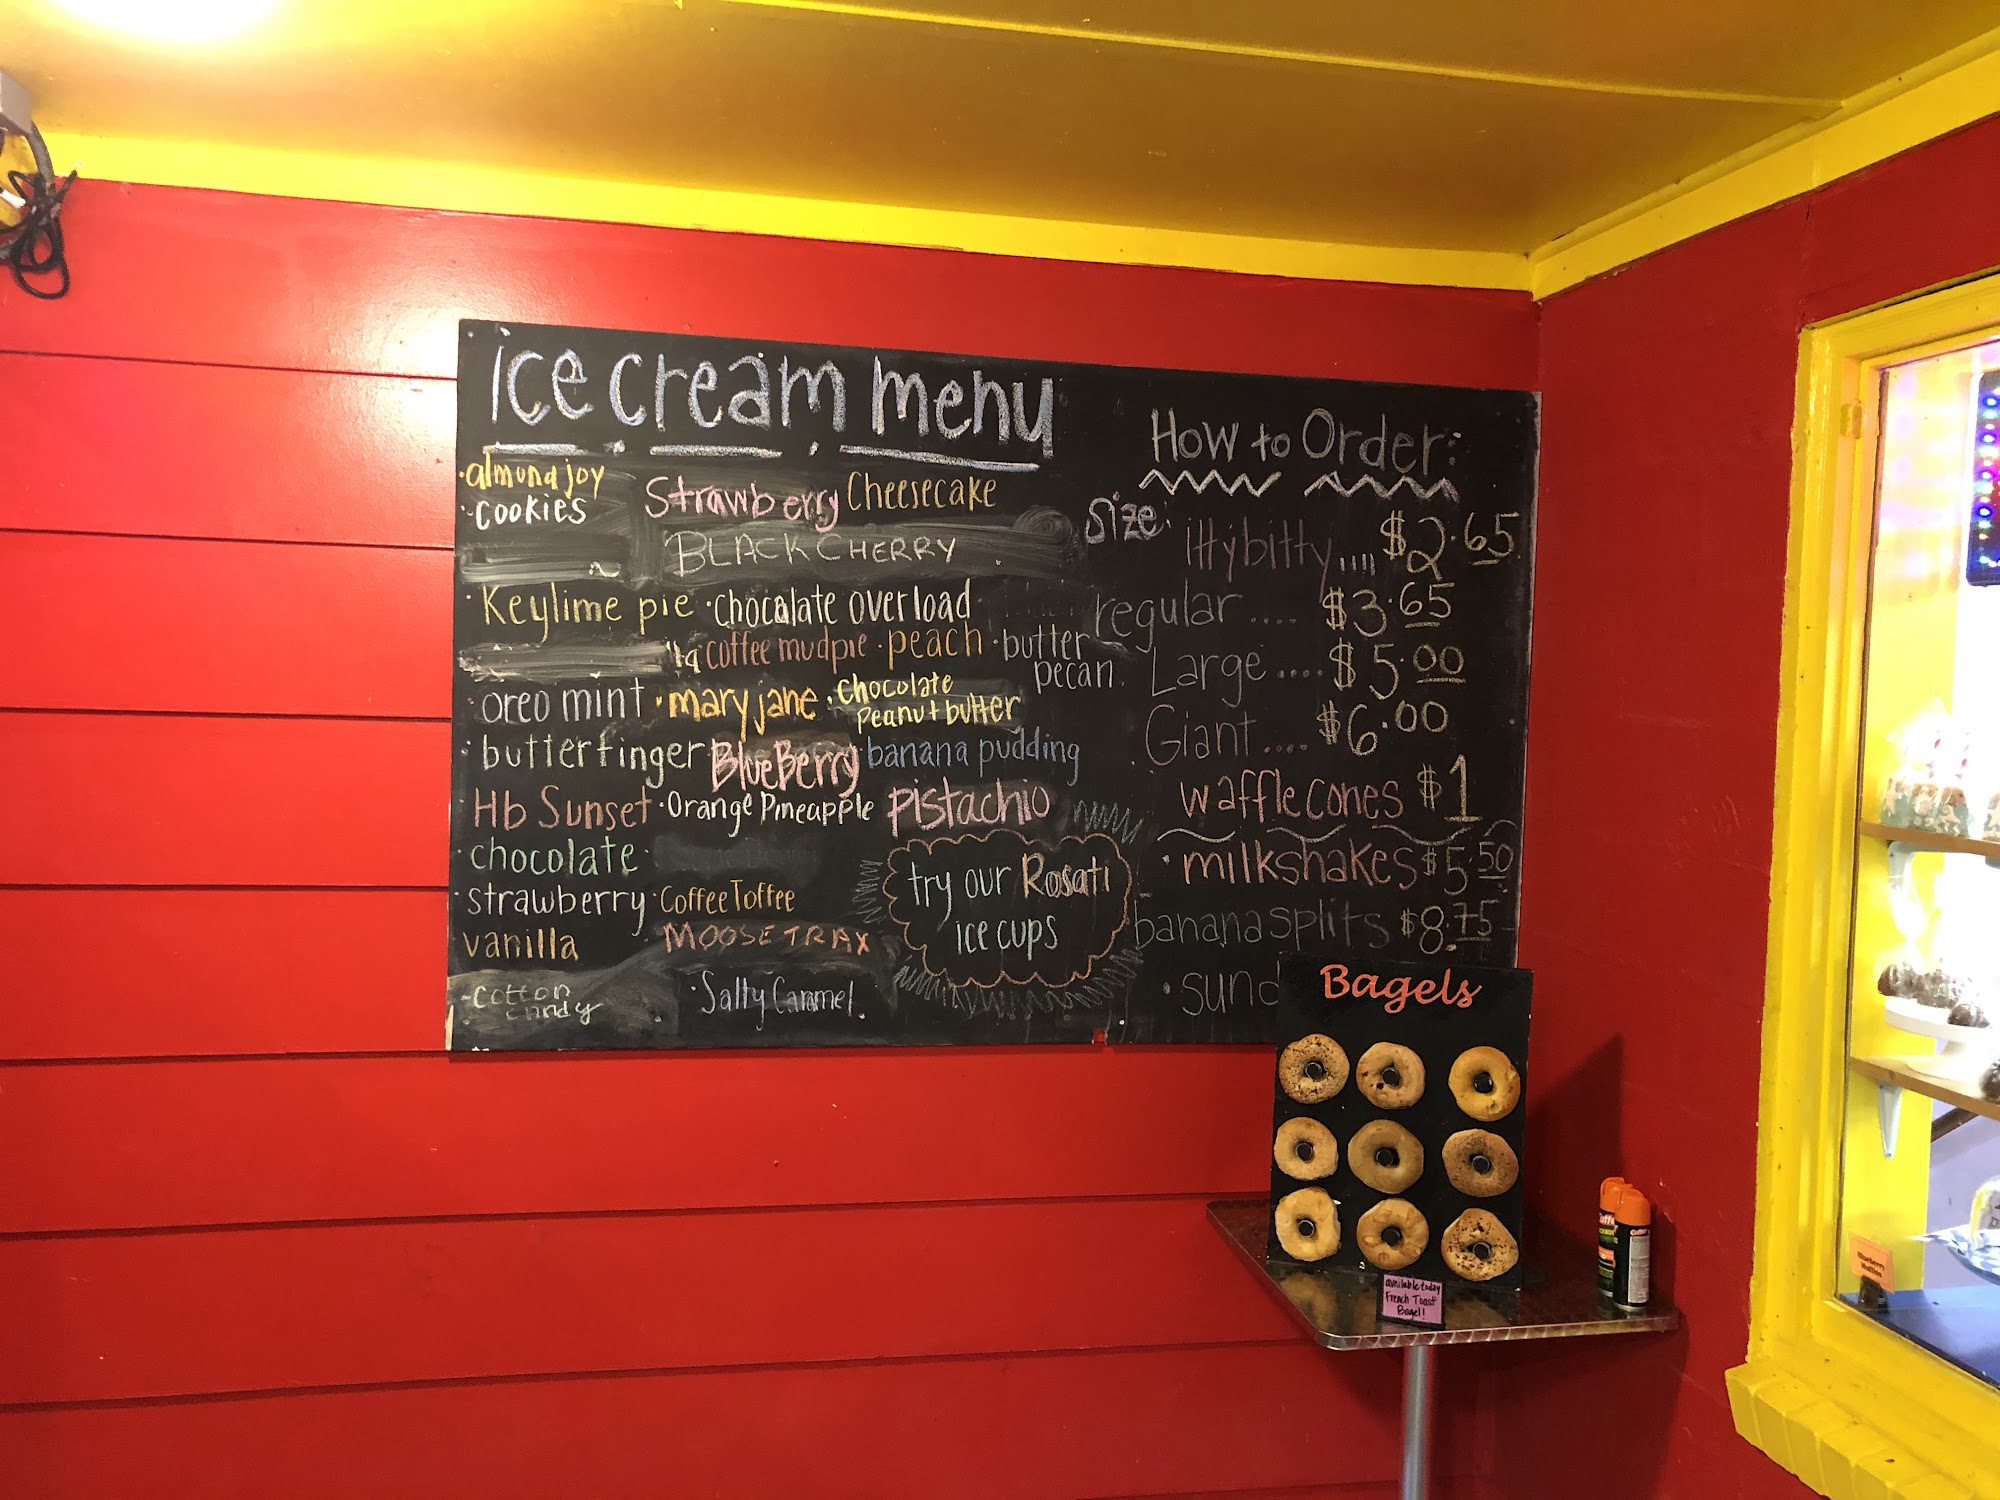 ice cream menu
·almond joy
·cookies
Strawberry Cheesecake
BLACK CHERRY
·Keylime pie ·chocolate overload
coffee mudpie ·peach ·butter pecan.
·oreo mint ·mary jane ·chocolate peanut butter
·butterfinger BlueBerry banana pudding
·Hb Sunset ·Orange Pineapple pistachio
·chocolate·
·strawberry ·Coffee Toffee
vanilla MOOSE TRAX
-cotton candy
·Salty Caramel.
try our Rosati
ice cups
How to Order:
Size:
Ittybitty.... $2.65
regular .... $3.65
Large .... $5.00
Giant .... $6.00
waffle cones $1
·milkshakes $5.50
bananasplits $8.75
·sund
Bagels
available today
French Toast
Bagel!
Blueberry
Muffins